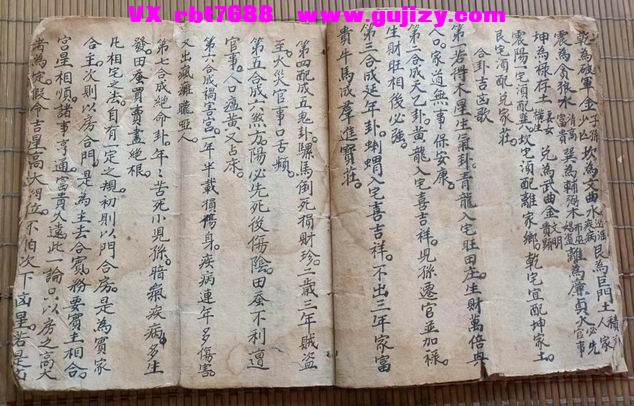 VX rbt7688 www.gujizy.com
乾為破軍金 坎為文曲水 艮為巨門土
震為貪狼木 巽為輔弼木 離為廉貞大官事
坤為祿存土 兌為武曲金
震陽二宅須配巽 坎宅須配離家鄉 乾宅宜配坤家土
艮宅須配兌家莊
合卦吉凶歌
第一若得木星生氣卦 青龍入宅旺田庄 生財萬倍興
人口 家道無事保安康
第二合成天乙卦 黃龍入宅喜吉祥 兒孫遷官並加祿
生財旺相後必強
第三合成延年卦 入宅喜吉祥 不出三年家富
貴 牛馬成群進寶莊
第四配成五鬼卦 騾馬倒死損財珍 二歲三年賊盜
主火災官事口舌頻
第五合成六煞方 陽必先死後傷陰 田蚕不利遭
官事 人口瘟黃又占床
第六合成禍害宮 年半載損傷身 疾病連年多傷害
又出瘋癱聾啞人
第七合成絕命卦 年年苦死小兒孫 暗氣疾病多生
發 田蚕買賣盡絕根
凡相宅之法 自有一定之規 初則以門合房 是為賓家
合主 次則以房合門 是為主去合賓 務要賓主相合
宮星相順 諸事亨通 富貴久遠 此一論 以房之高大
者為定 假命吉星高大得位 不怕次下凶星 若是